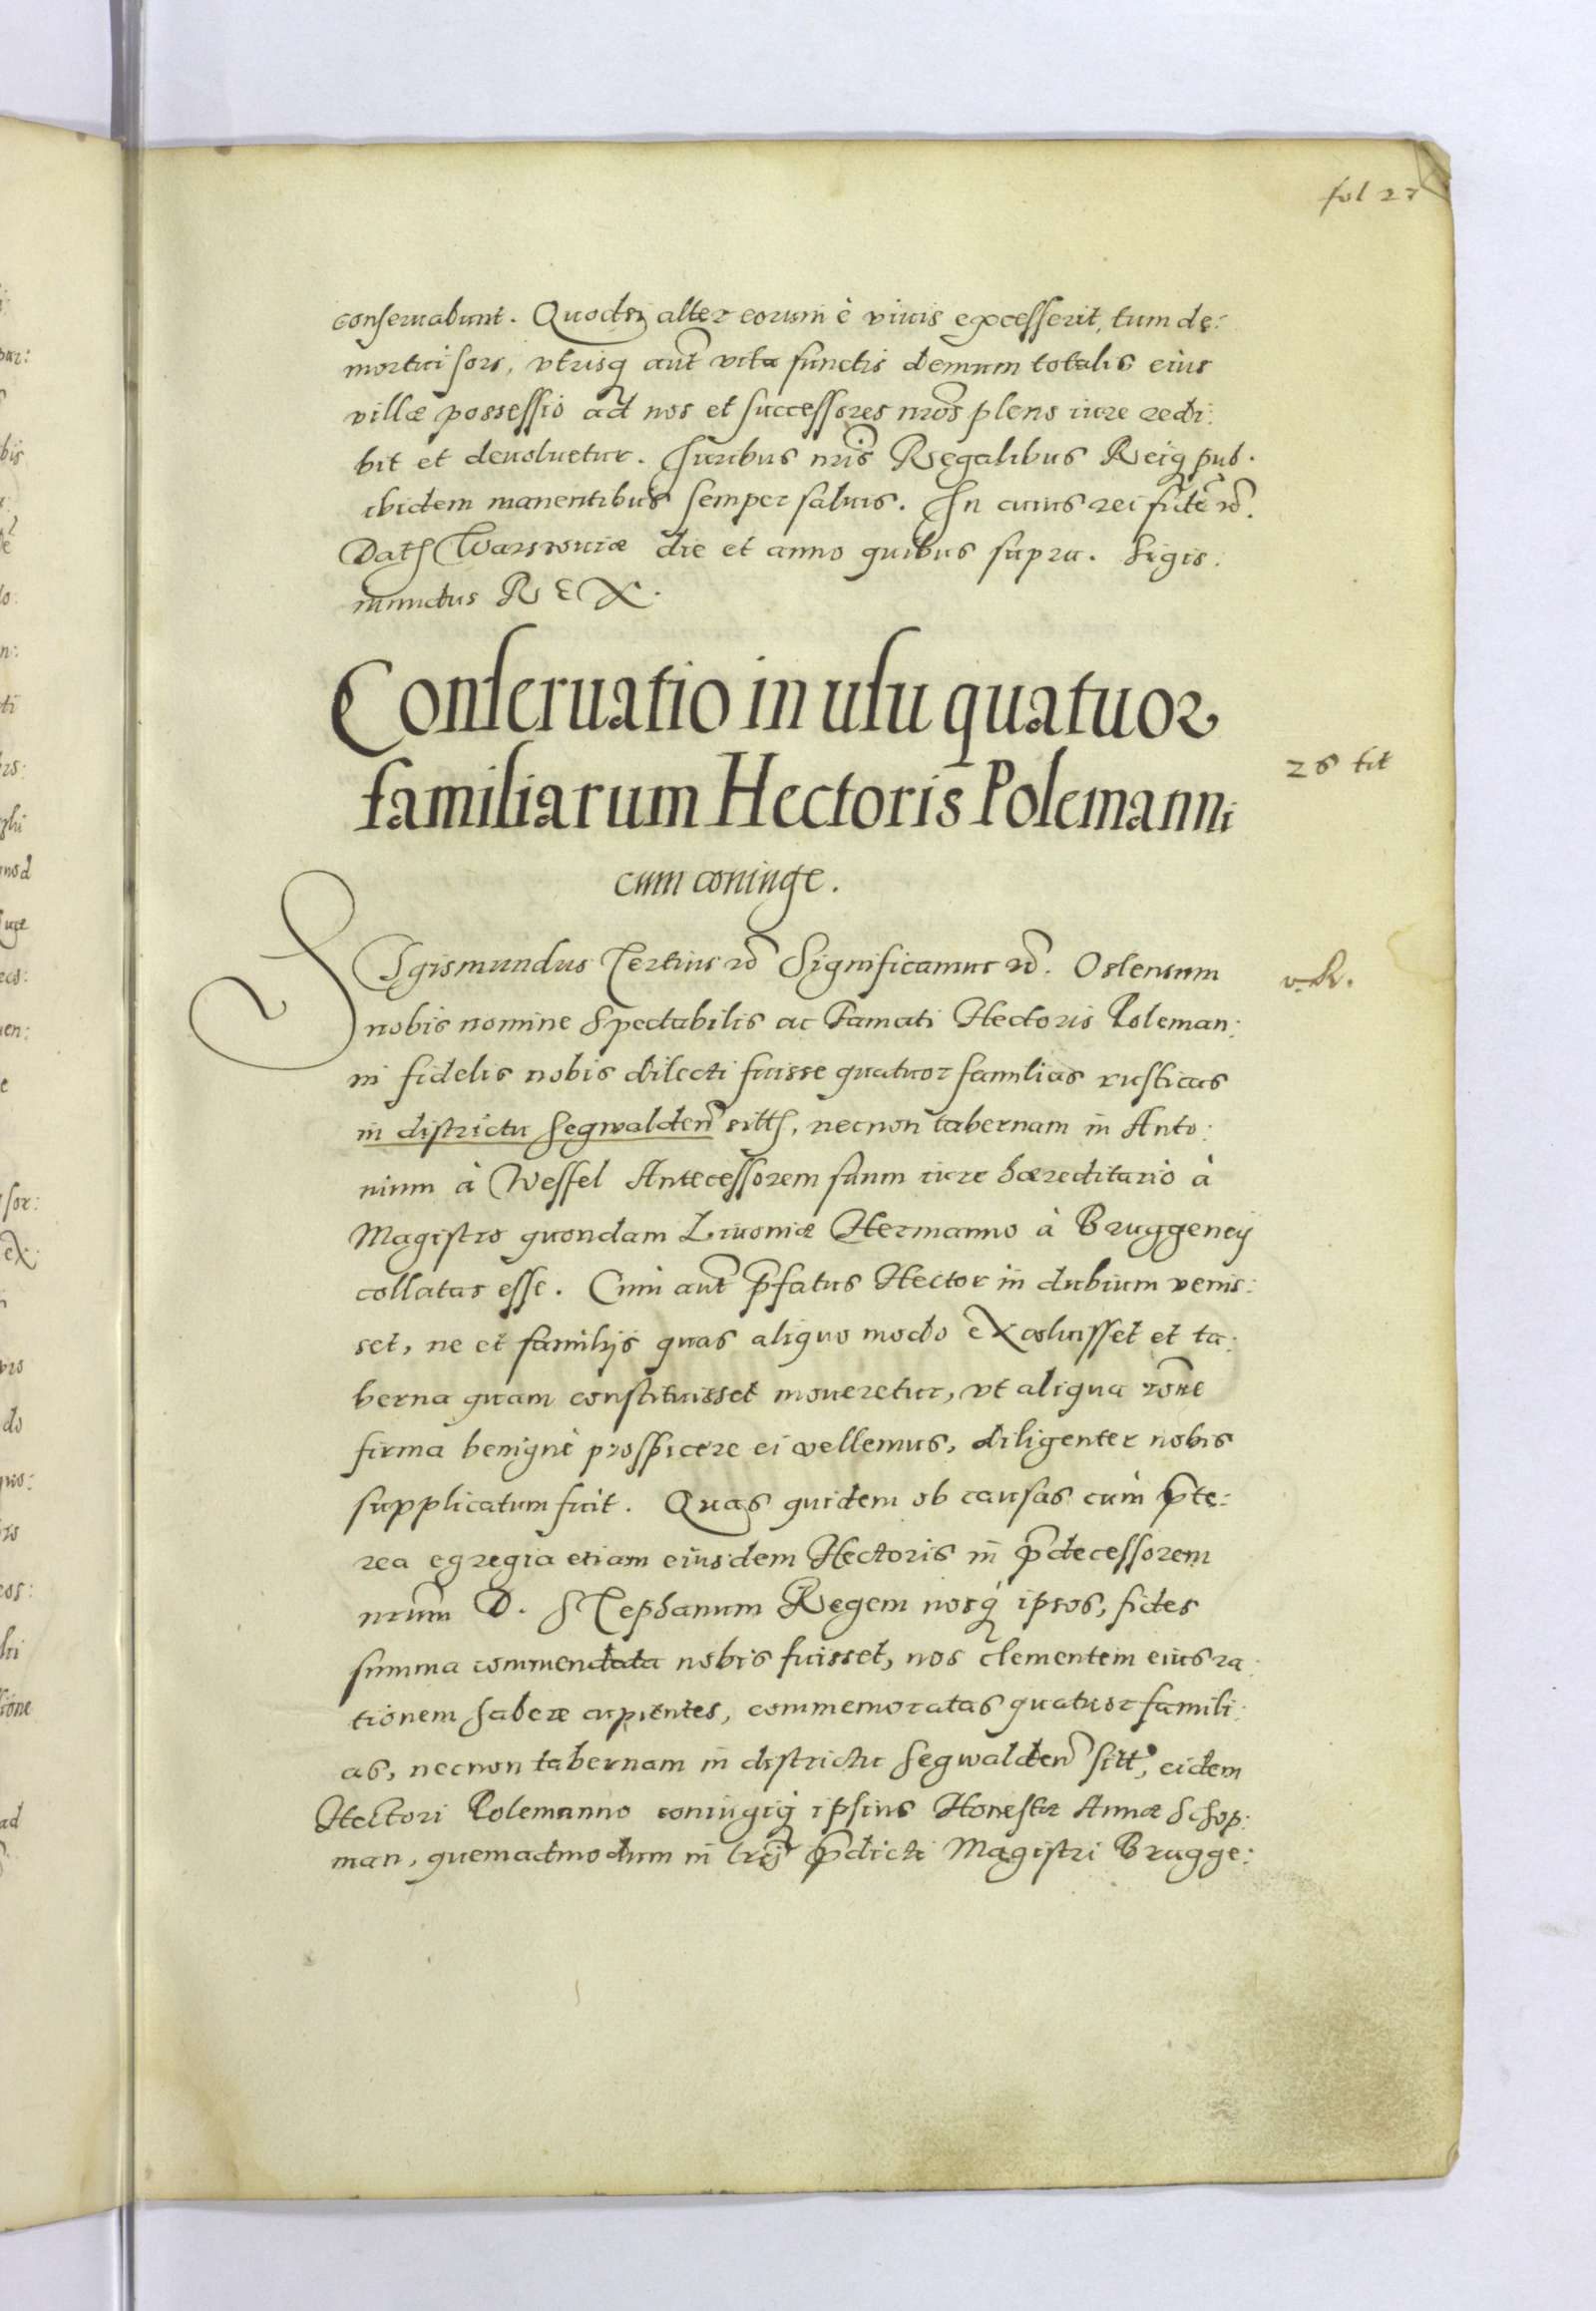 fol 27
conseruabunt. Quodsi alter eorum è viuis excesserit, tum de:
mortui sors, vtrisq aut vita functis demum totalis eius
villæ possessio ad nos et successores nros pleno iure redi:
bit et deuoluetur. Iuribus nris Regalibus Reiq pub.
ibidem manentibus semper saluis. In cuius rei fidē
Dat Warsouiæ die et anno quibus supra. Sigis:
mundus REX.
Conseruatio in usu quatuor
familiarum Hectoris Polemanni
26 tit
cum coniuge.
SIgismundus Tertius Significamus. Ostensum
nobis nomine Spectabilis ac Famati Hectoris Poleman:
ni fidelis nobis dilecti fuisse quatuor familias rusticas
in districtu Segwalden sitt, necnon tabernam in Anto:
nium à Wessel Antecessorem suum iure hæreditario à
Magistro quondam Liuoniæ Hermanno à Bruggeneÿ
collatas esse. Cùm aut pfatus Hector in dubium venis:
set, ne et familijs quas aliquo modo excoluisset et ta:
berna quam constituisset moueretur, vt aliqua rone
firma benignè prospicere ei vellemus, diligenter nobis
supplicatum fuit. Quas quidem ob causas cùm pte:
rea egregia etiam eiusdem Hectoris in pdecessorem
nrum D. Stephanum Regem nosq ipsos, fides
summa commendata nobis fuisset, nos clementem eius ra:
tionem habere cupientes, commemoratas quatuor famili:
as, necnon tabernam in districtu Segwalden sitt, eidem
Hectori Polemanno coniugiq ipsius Honestæ Annæ Schop:
man, quemadmodum in lris pdicti Magistri Brugge: